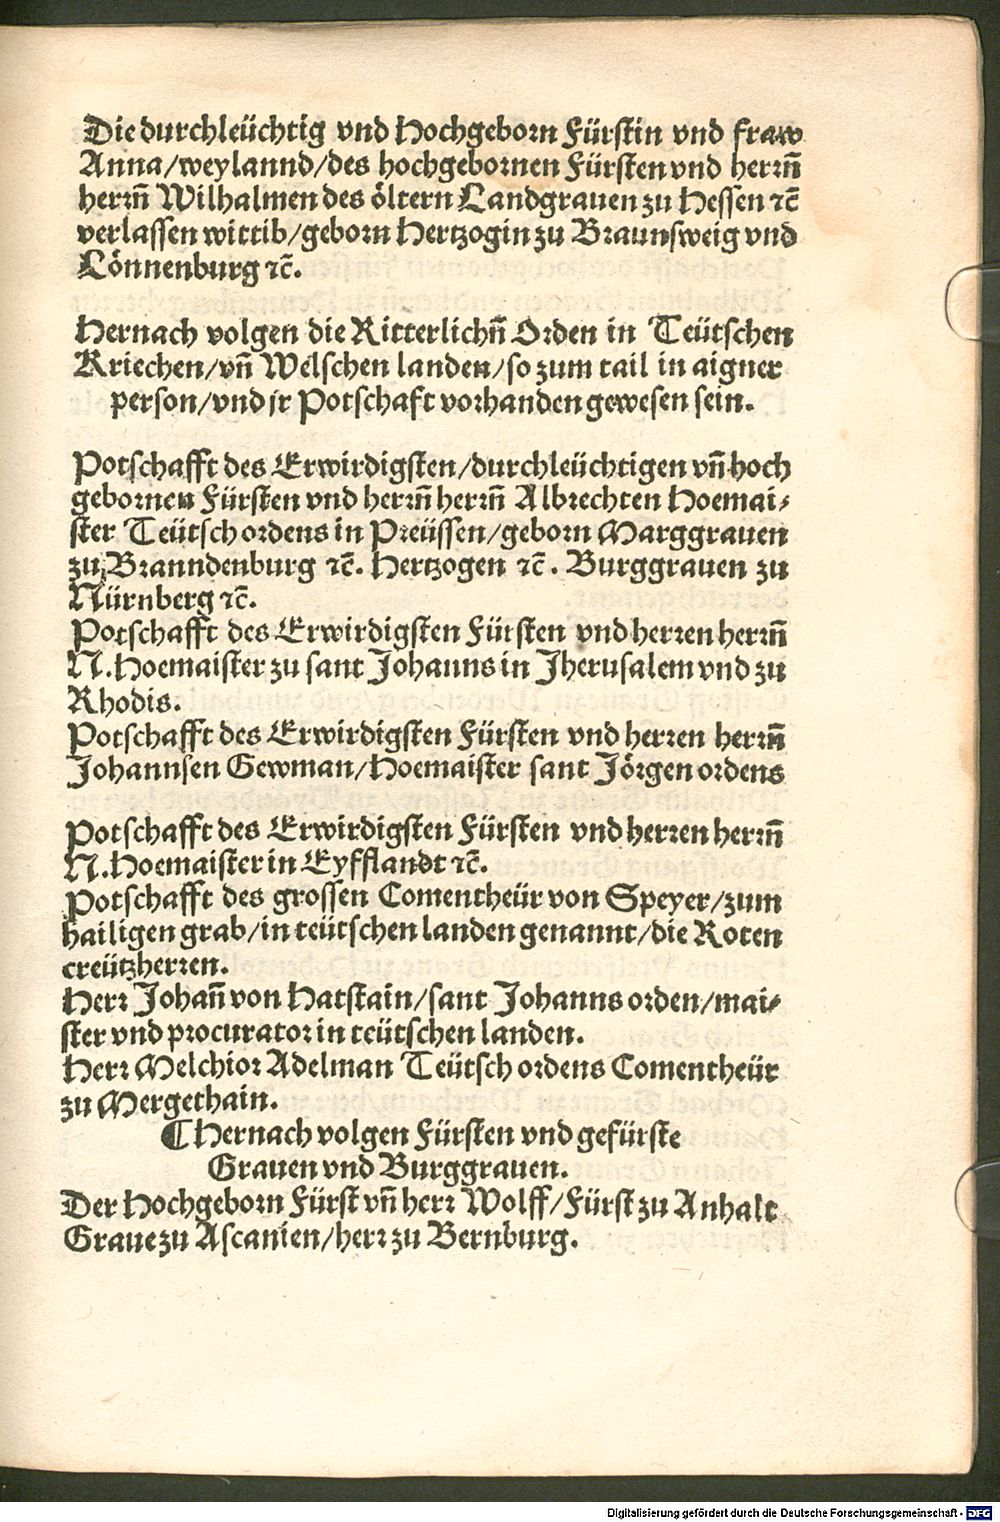 Die durchleüchtig vnd Hochgeborn Fürstin vnd fraw
Anna/weylannd/des hochgebornen Fürsten vnd herrn̄
herrn̄ Wilhalmen des öltern Landgrauen zu Hessen ꝛc̄
verlassen wittib/geborn Hertzogin zu Braunsweig vnd
Lönnenburg ꝛc̄.
Hernach volgen die Ritterlichn̄ Orden in Teütschen
Kriechen/vn̄ Welschen landen/so zum tail in aigner
person/vnd jr Potschaft vorhanden gewesen sein.
Potschafft des Erwirdigsten/durchleüchtigen vn̄ hoch
gebornen Fürsten vnd herrn̄ herrn̄ Albrechten Hoemai⸗
ster Teütsch ordens in Preüssen/geborn Marggrauen
zu Branndenburg ꝛc̄. Hertzogen ꝛc̄. Burggrauen zu
Nürnberg ꝛc̄.
Potschafft des Erwirdigsten Fürsten vnd herren herrn̄
N. Hoemaister zu sant Johanns in Jherusalem vnd zu
Rhodis.
Potschafft des Erwirdigsten Fürsten vnd herren herrn̄
Johannsen Gewman/Hoemaister sant Jörgen ordens
Potschafft des Erwirdigsten Fürsten vnd herren herrn̄
N. Hoemaister in Eyfflandt ꝛc̄.
Potschafft des grossen Comentheür von Speyer/zum
hailigen grab/in teütschen landen genannt/die Roten
creützherren.
Herr Johan̄ von Hatstain/sant Johanns orden/mai⸗
ster vnd procurator in teütschen landen.
Herr Melchior Adelman Teütsch ordens Comentheür
zu Mergethain.
⸿Hernach volgen Fürsten vnd gefürste
Grauen vnd Burggrauen.
Der Hochgeborn Fürst vn̄ herr Wolff/Fürst zu Anhalt
Graue zu Ascanien/herr zu Bernburg.
Digitalisierung gefördert durch die Deutsche Forschungsgemeinschaft - DFG